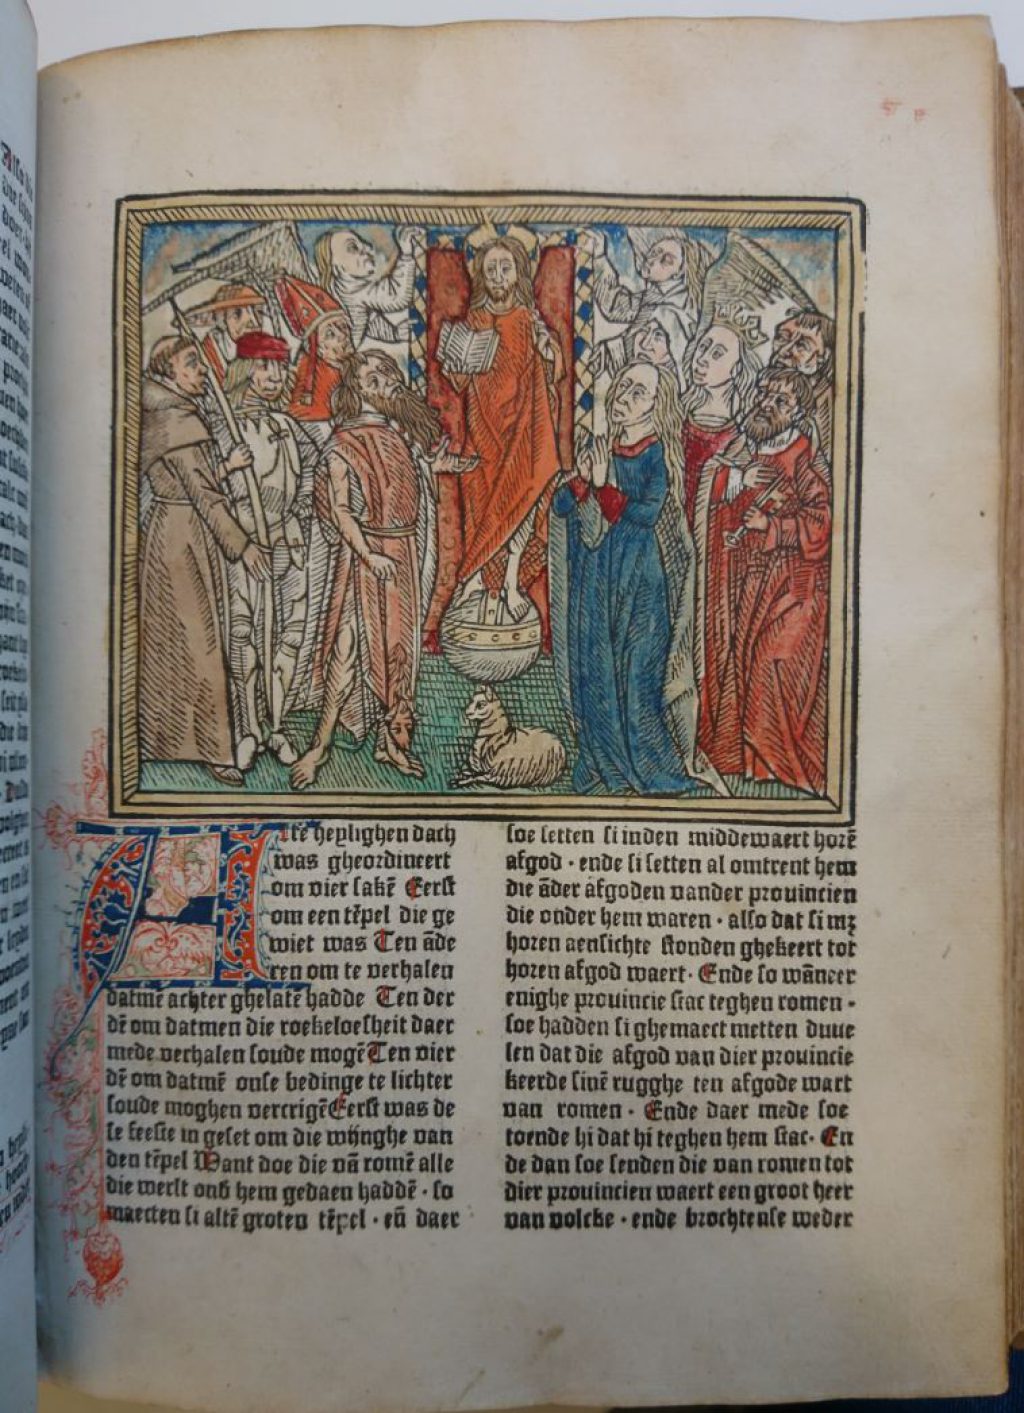 Alle heylighen dach
was gheordineert
om vier sakē Eerst
om een tēpel die ge
wiet was Ten āde
ren om te verhalen
datmē achter ghelatē hadde Ten der
dē om datmen die roekeloesheit daer
mede verhalen soude mogē Ten vier
dē om datmē onse bedinge te lichter
soude moghen vercrigē Eerst was de
se feeste in geset om die wijnghe van
den tēpel Want doe die vā romē alle
die werlt ond hem gedaen haddē · so
maecten si altē groten tēpel · eñ daer
soe setten si inden middewaert horē
afgod · ende si setten al omtrent hem
die āder afgoden vander prouincien
die onder hem waren · also dat si mz
horen aensichte stonden ghekeert tot
horen afgod waert · Ende so wāneer
enighe prouincie stac teghen romen ·
soe hadden si ghemaect metten duue
len dat die afgod van dier prouincie
keerde sinē rugghe ten afgode wart
van romen · Ende daer mede soe
toende hi dat hi teghen hem stac · En
de dan soe senden die van romen tot
dier prouincien waert een groot heer
van volcke · ende brochtense weder